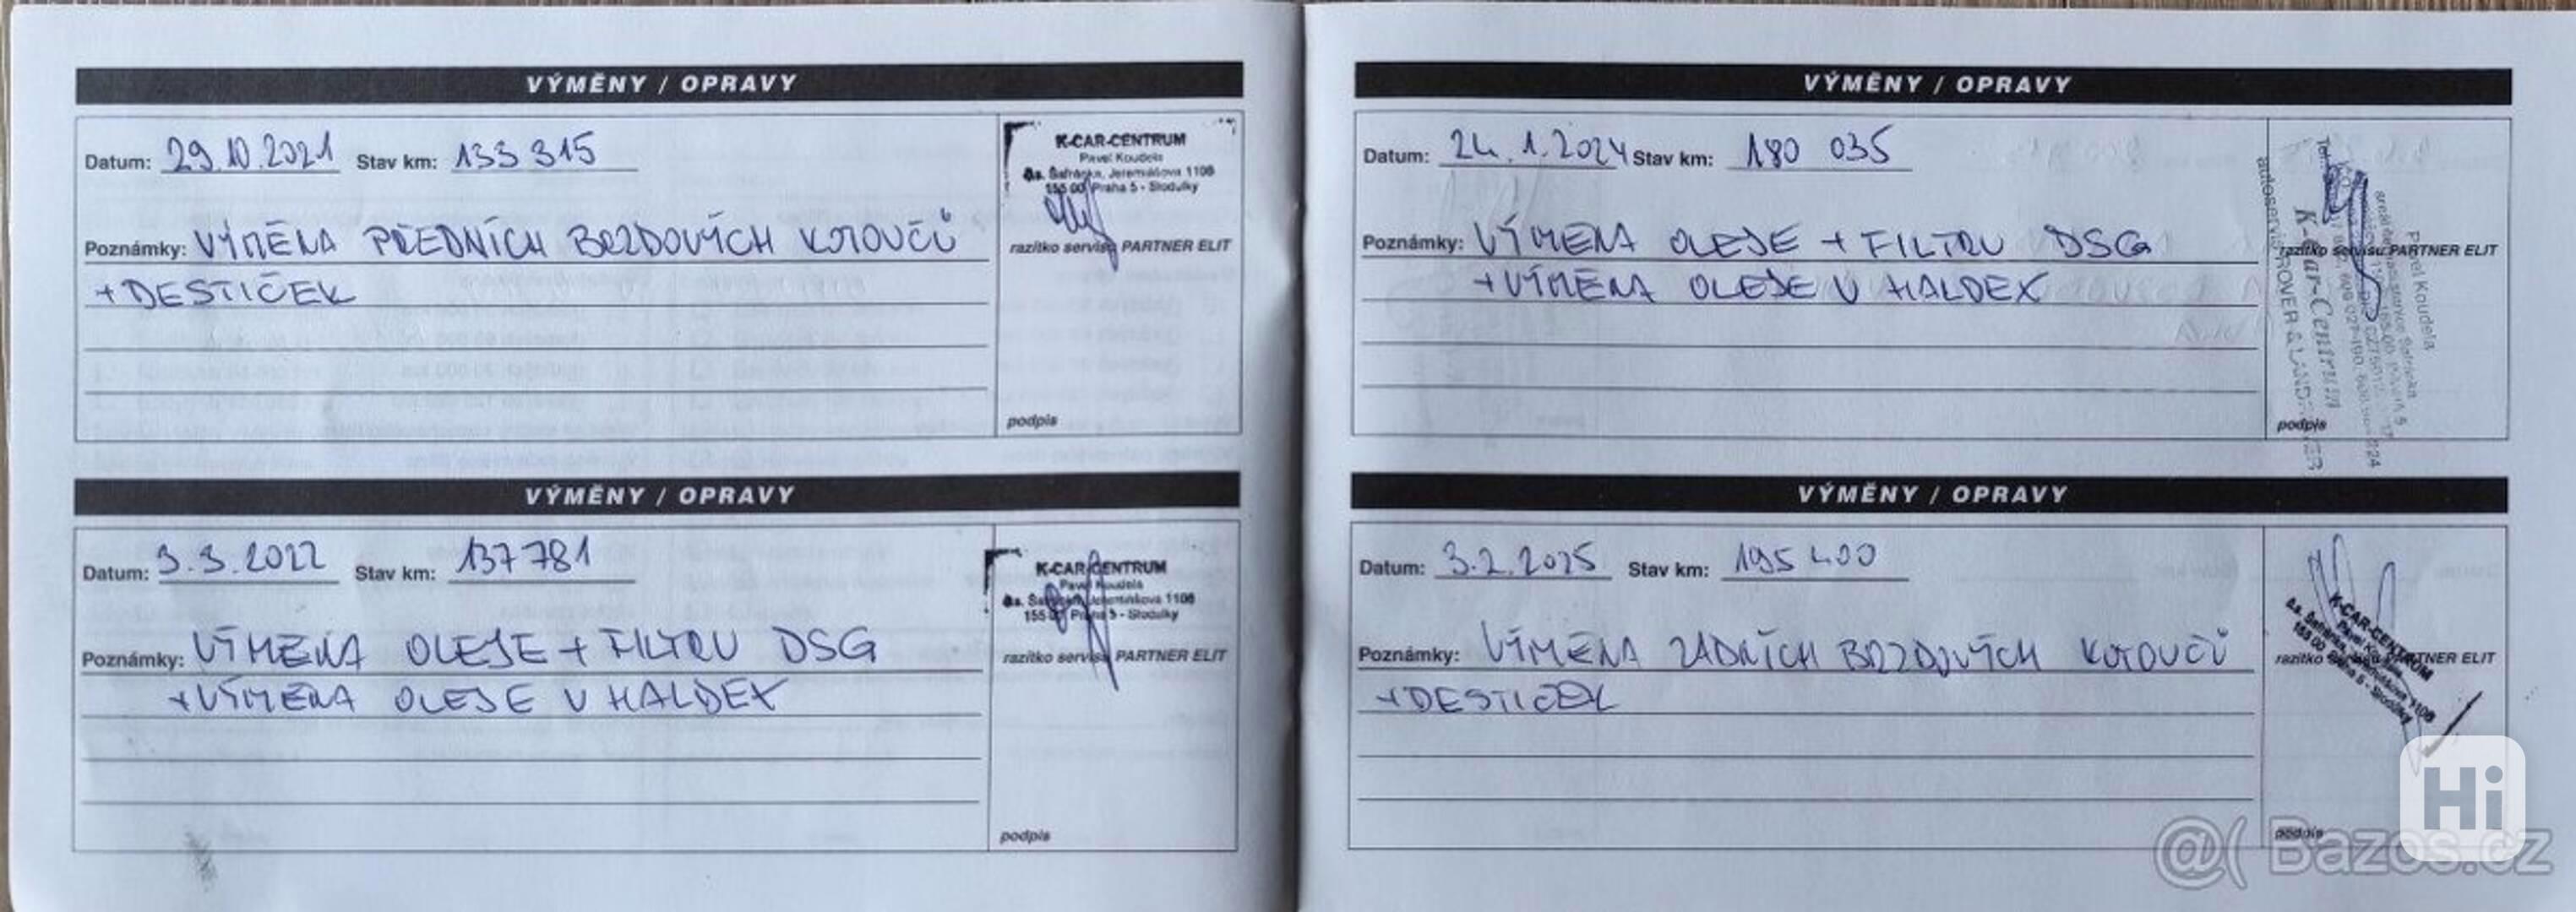 VÝMĚNY / OPRAVY
Datum: 29.10.2021 Stav km: 133 315
Poznámky: VÝMĚNA PŘEDNÍCH BRZDOVÝCH KOTOUČŮ
+ DESTIČEK
K-CAR-CENTRUM
Pavel Koudela
As. Šafránka, Jeremiášova 1106
155 00 Praha 5 - Stodůlky
razítko servisu PARTNER ELIT
podpis
VÝMĚNY / OPRAVY
Datum: 3.3.2022 Stav km: 137 781
Poznámky: VÝMĚNA OLEJE + FILTRU DSG
+ VÝMĚNA OLEJE V HALDEX
K-CAR-CENTRUM
Pavel Koudela
As. Šafránka, Jeremiášova 1106
155 00 Praha 5 - Stodůlky
razítko servisu PARTNER ELIT
podpis
VÝMĚNY / OPRAVY
Datum: 24.1.2024 Stav km: 180 035
Poznámky: VÝMĚNA OLEJE + FILTRU DSG
+ VÝMĚNA OLEJE V HALDEX
Pavel Koudela
K-Car-Centrum
autoservis ROVER & LAND ROVER
razítko servisu PARTNER ELIT
podpis
VÝMĚNY / OPRAVY
Datum: 3.2.2025 Stav km: 195 400
Poznámky: VÝMĚNA ZADNÍCH BRZDOVÝCH KOTOUČŮ
+ DESTIČEK
K-CAR-CENTRUM
Pavel Koudela
As. Šafránka, Jeremiášova 1106
155 00 Praha 5 - Stodůlky
razítko servisu PARTNER ELIT
podpis
Hi
@( Bazos.cz